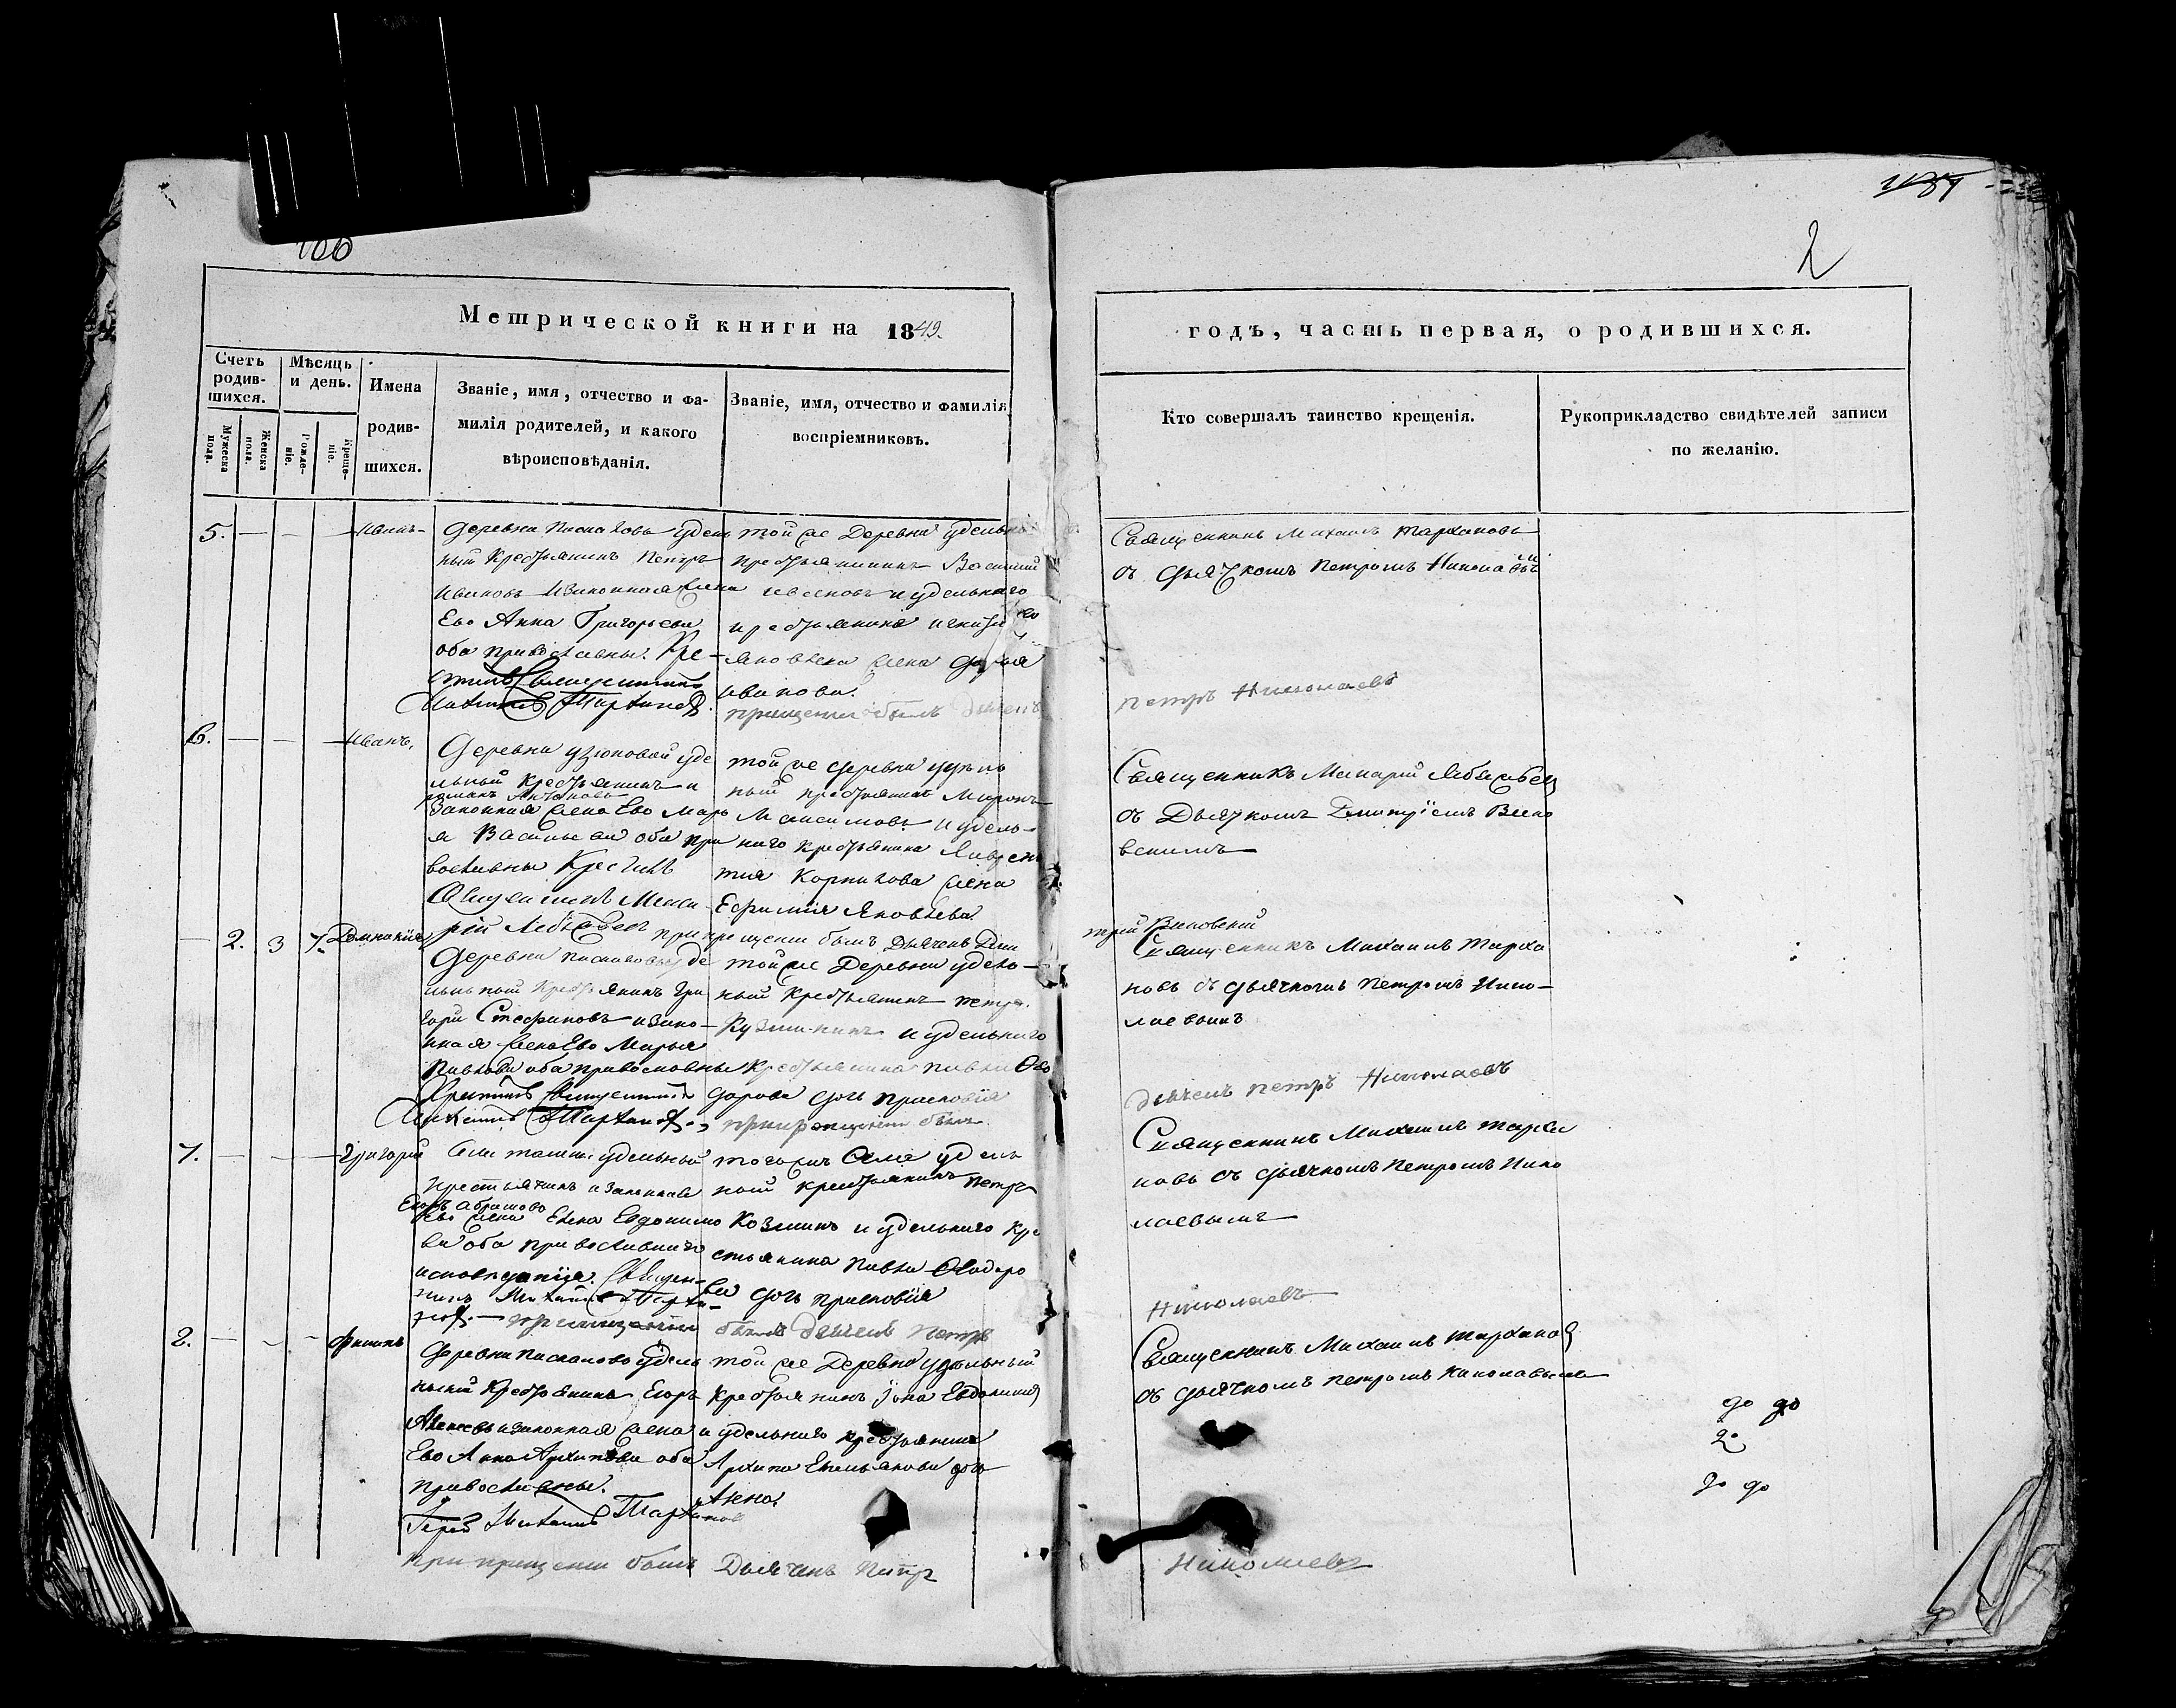 166
1187
2
Метрической книги на 1849.
годъ, часть первая, о родившихся.
Счетъ родив-шихся.
Мѣсяцъ и день.
Имена родив-шихся.
Званіе, имя, отчество и фа-
милія родителей, и какого
вѣроисповѣданія.
Званіе, имя, отчество и фамилія
воспріемниковъ.
Кто совершалъ таинство крещенія.
Рукоприкладство свидѣтелей записи
по желанію.
Мужеска пола.
Женска пола.
Рожде-ніе.
Креще-ніе.
5. — — — Иванъ
Деревни удель
ный Крестьянинъ Петръ
Ивановъ и законная жена
Ево Анна Григорьева
оба православны. Кре-
стилъ Священникъ
Михаилъ Тархановъ.
той же Деревни удельной
крестьянинъ Василий
Ивановъ и удельнаго
крестьянина
жена Дарья
Иванова.
при крещении былъ дьячекъ
Священникъ Михаилъ Тархановъ
съ дьячкомъ Петромъ Николаевымъ
Петръ Николаевъ
6. — — — Иванъ.
Деревни Узюковой уде
льный крестьянинъ и
Романъ Антоновъ
Законная жена Ево Марь
я Васильева оба пра
вославны Крестилъ
Священникъ Мака
рій Лебяжьевъ
той же деревни удель
ный крестьянинъ Миронъ
Максимовъ и удель-
наго крестьянина Лаврен
тия Корнилова жена
Ефимия Яковлева
при крещении былъ Дьячекъ Дми
Священникъ Макарій
съ Дьячкомъ Дмитріемъ
трій
— 2. 3 7. Домникия
Деревни уде
льный крестьянинъ Гри
гори Стефановъ и зако-
нная жена Ево Марья
Павлова оба православны
Крестилъ Священникъ
Михаилъ Тархановъ.
той же Деревни удель-
ный крестьянинъ Петръ
Кузминъ и удельнаго
крестьянина Павла Фео
дорова дочь Прасковія
при крещении былъ
Священникъ Михаилъ Тарха
новъ съ дьячкомъ Петромъ Нико-
лаевымъ
дьячекъ Петръ Николаевъ
7. — — — Григорій
Села удельный
крестьянинъ и законная
Егоръ Абрамовъ
ево жена Елена Евдокимо
ва оба православнаго
исповеданія. Священ-
никъ Михаилъ Тарха-
новъ. — при крещении
тогожъ Села удель
ный крестьянинъ Петръ
Козминъ и удельнаго кре
стьянина Павла Феодоро
ва дочь Прасковія
былъ дьячекъ Петръ
Священникъ Михаилъ Тарха
новъ съ дьячкомъ Петромъ Нико
лаевымъ
Николаевъ
2. — — —
Деревни удель
ный крестьянинъ Егоръ
Алексеевъ и законная жена
Ево Анна Архипова оба
православны.
Іерей Михаилъ Тархановъ
при крещении былъ
той же Деревни удельный
Крестьянинъ Іона Евдокимовъ
и удельнаго крестьянина
Архипа Емельянова дочь
Анна.
Дьячекъ Петръ
Священникъ Михаилъ Тархановъ
съ дьячкомъ Петромъ Николаевымъ
Николаевъ